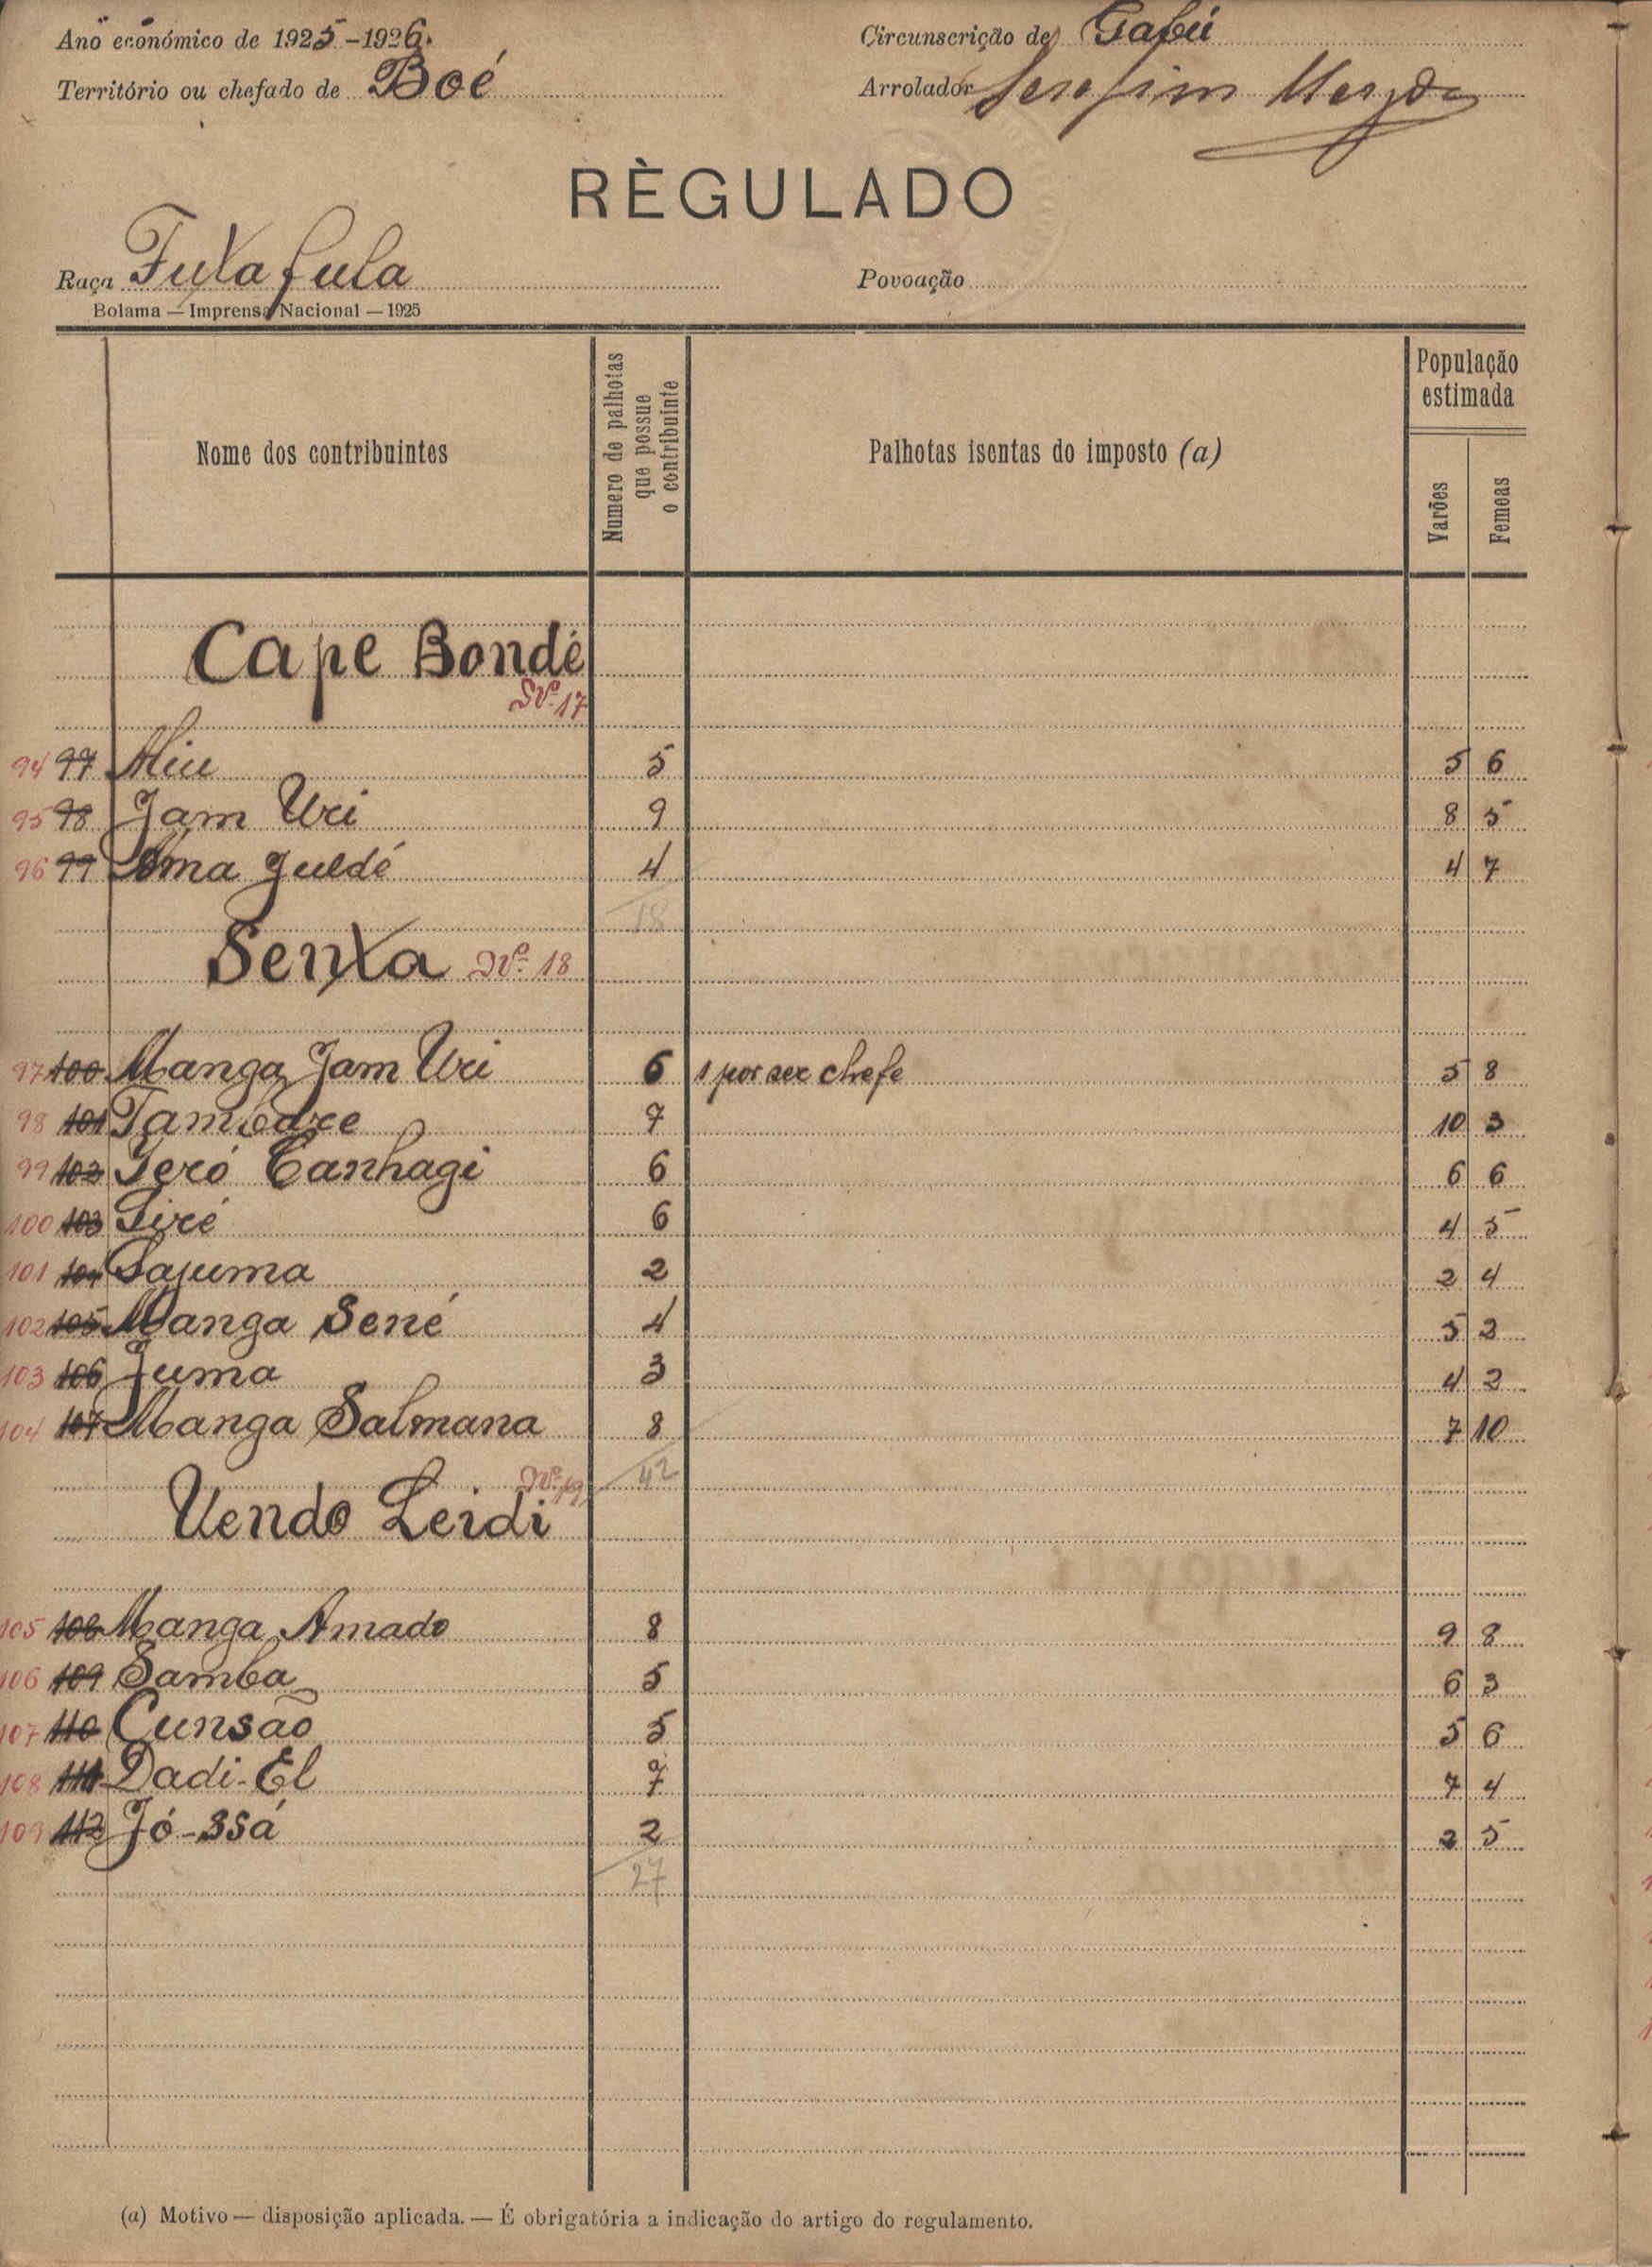 Ano económico de 1925-1926.
Circunscrição de Gabú
Território ou chefado de Boé
Arrolador Serafim
RÈGULADO
Raça Futa fula
Povoação
Bolama — Imprensa Nacional — 1925
Nome dos contribuintes
Numero de palhotas que possue o contribuinte
Palhotas isentas do imposto (a)
População estimada
Varões
Femeas
Cape Bondé
Nº 17
94 97 Aliu 5 5 6
95 98 Jam Uri 9 8 5
96 99 guldé 4 4 7
18
Senta Nº 18
97 100 Manga Jam Uri 6 1 por ser chefe 5 8
98 101 7 10 3
99 102 Canhagi 6 6 6
100 103 Siré 6 4 5
101 104 Sajuma 2 2 4
102 105 Manga Sené 4 5 2
103 106 Juma 3 4 2
104 107 Manga Salmana 8 7 10
Nº 19 42
Uendo Leidi
105 108 Manga Amado 8 9 8
106 109 Samba 5 6 3
107 110 Cunsão 5 5 6
108 111 Dadi-El 7 7 4
109 112 Jó-ssá 2 2 5
27
(a) Motivo — disposição aplicada. — É obrigatória a indicação do artigo do regulamento.